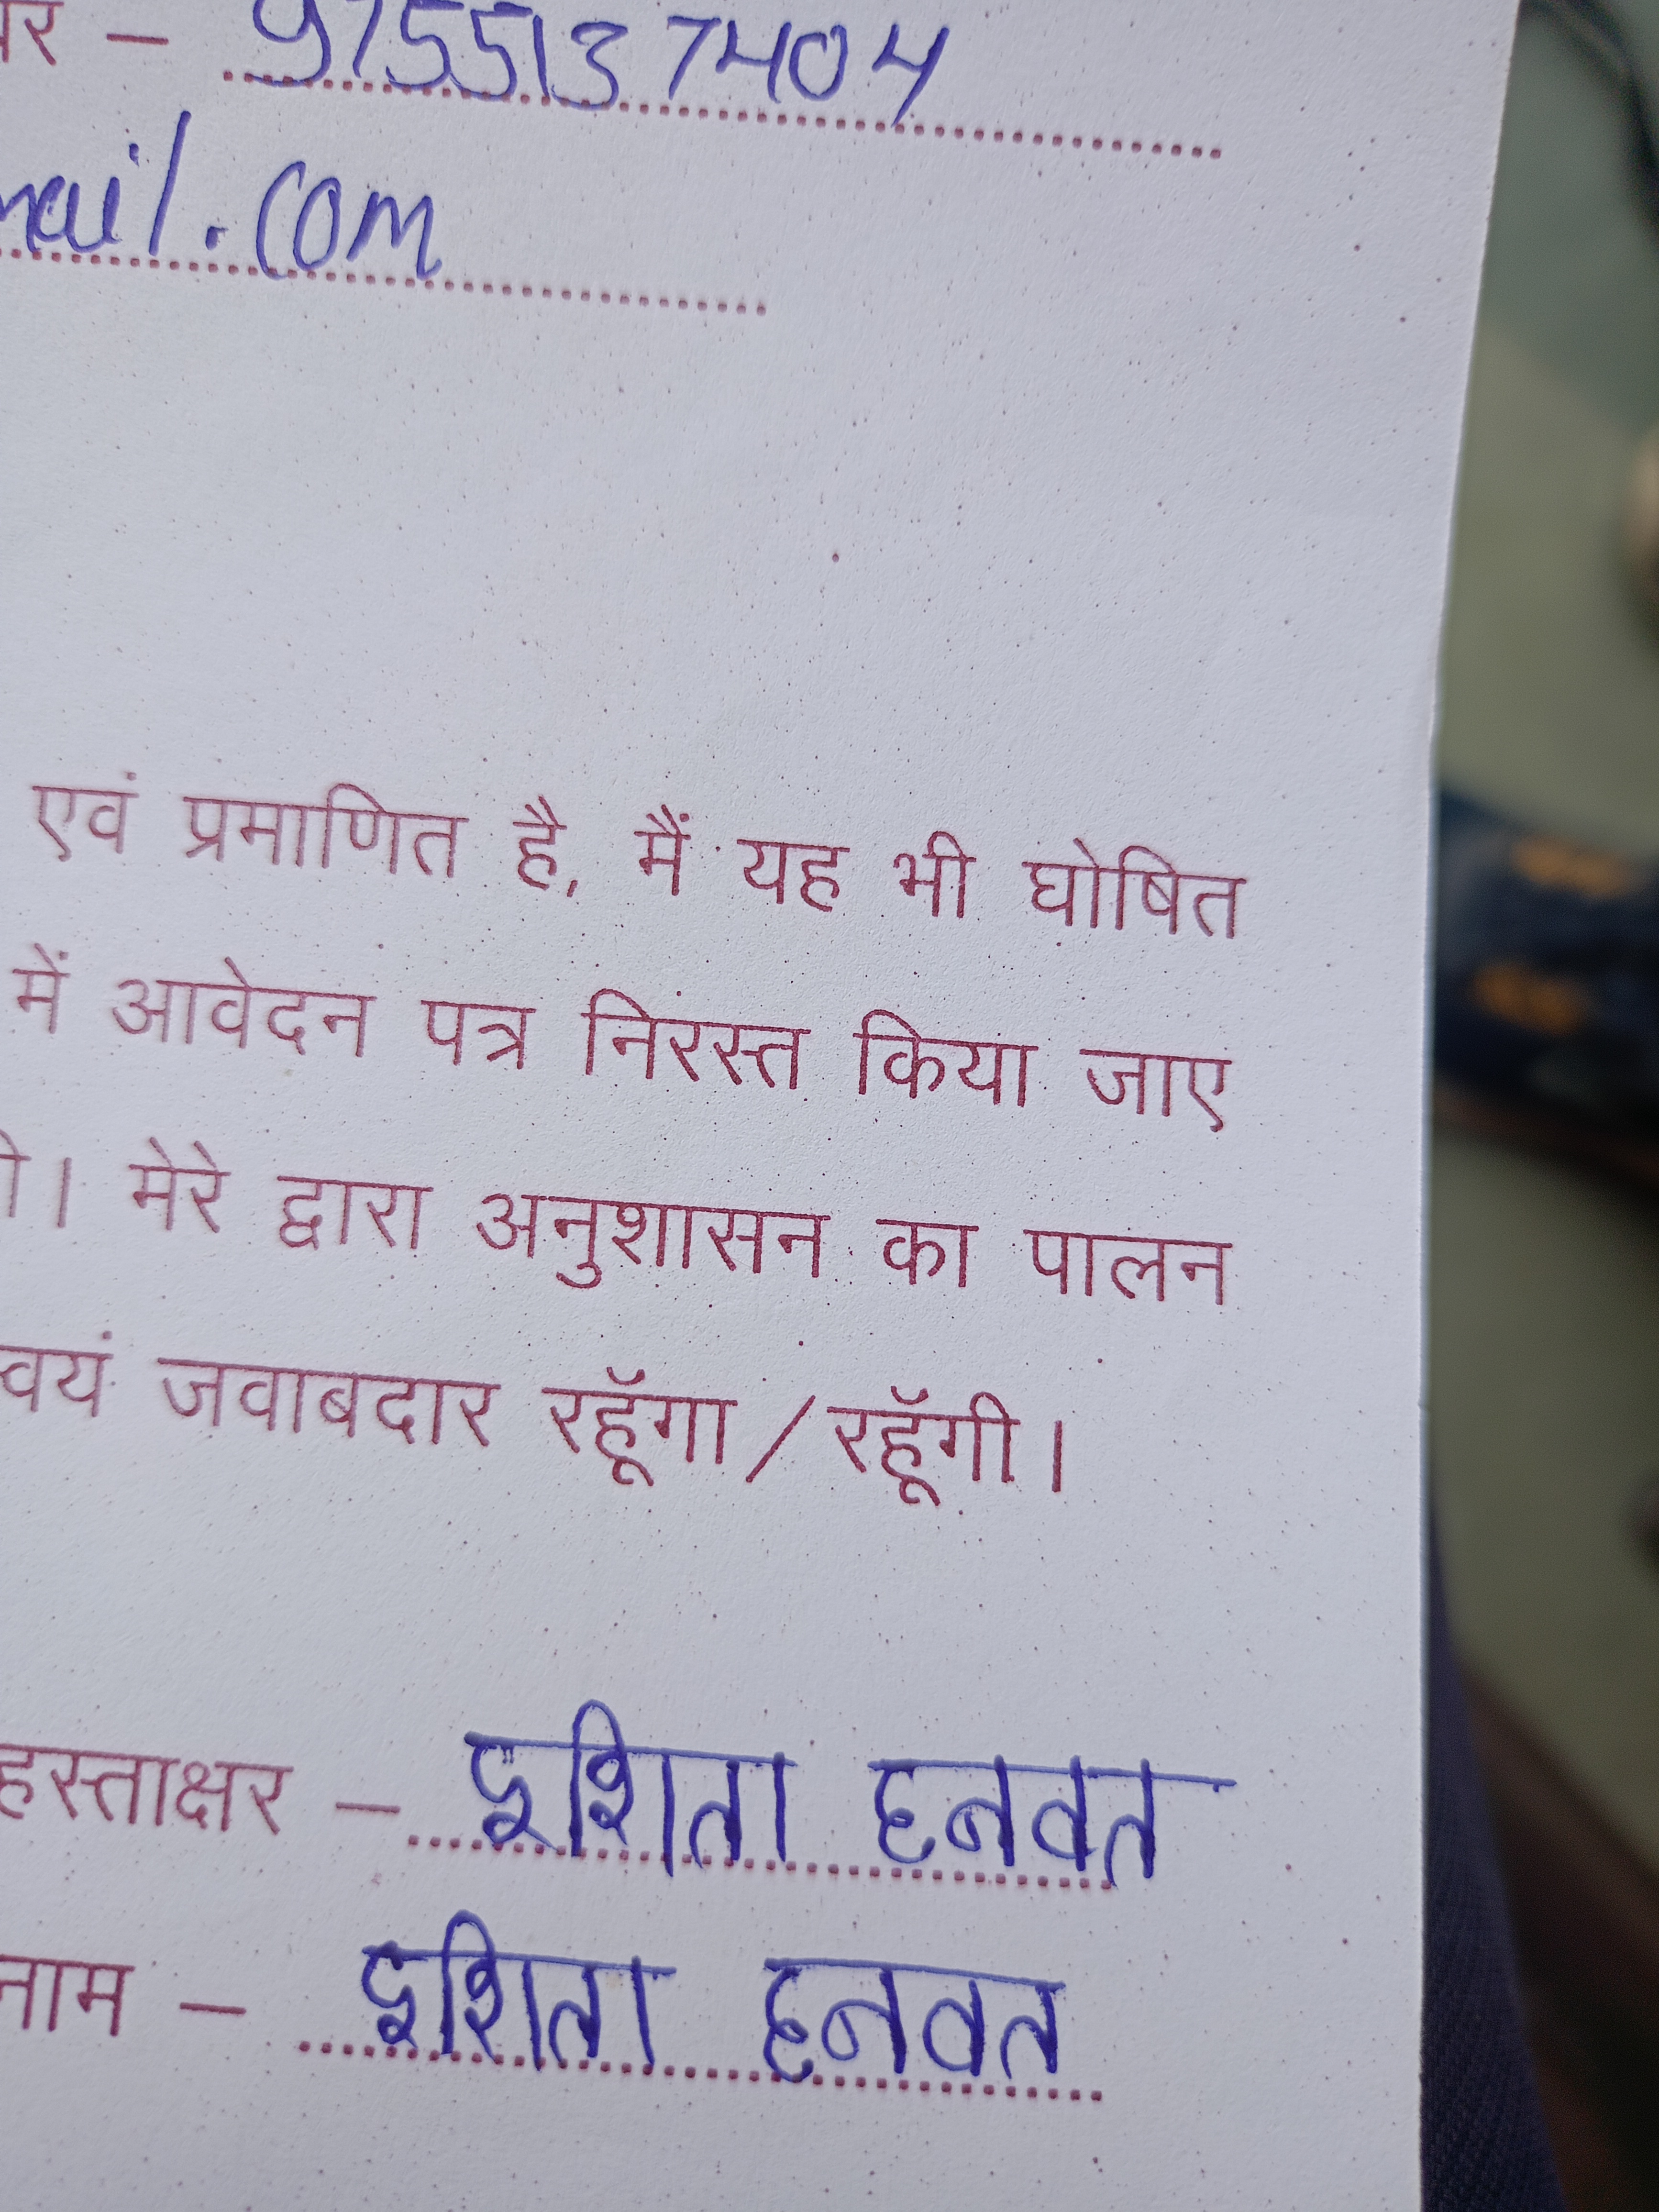 र – 9755137404
mail.com
एवं प्रमाणित है, मैं यह भी घोषित
में आवेदन पत्र निरस्त किया जाए
। मेरे द्वारा अनुशासन का पालन
वयं जवाबदार रहूॅगा/रहूॅगी।
हस्ताक्षर – इशिता हनवत
नाम – इशिता हनवत